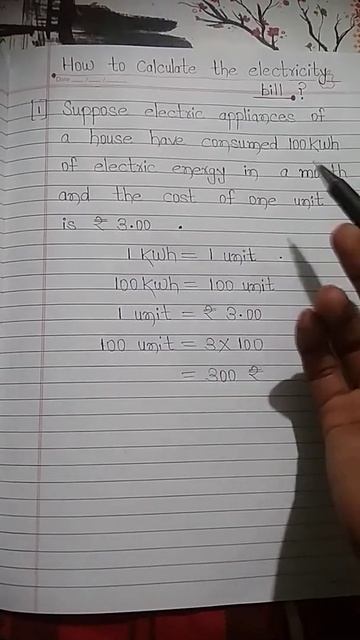 How to Calculate the electricity
Date
bill.?
1 Suppose electric appliances of
a house have consumed 100 kwh
of electric energy in a month
and the cost of one unit
is ₹ 3.00 .
1 kwh = 1 unit .
100 kwh = 100 unit
1 unit = ₹ 3.00
100 unit = 3 X 100
= 300 ₹